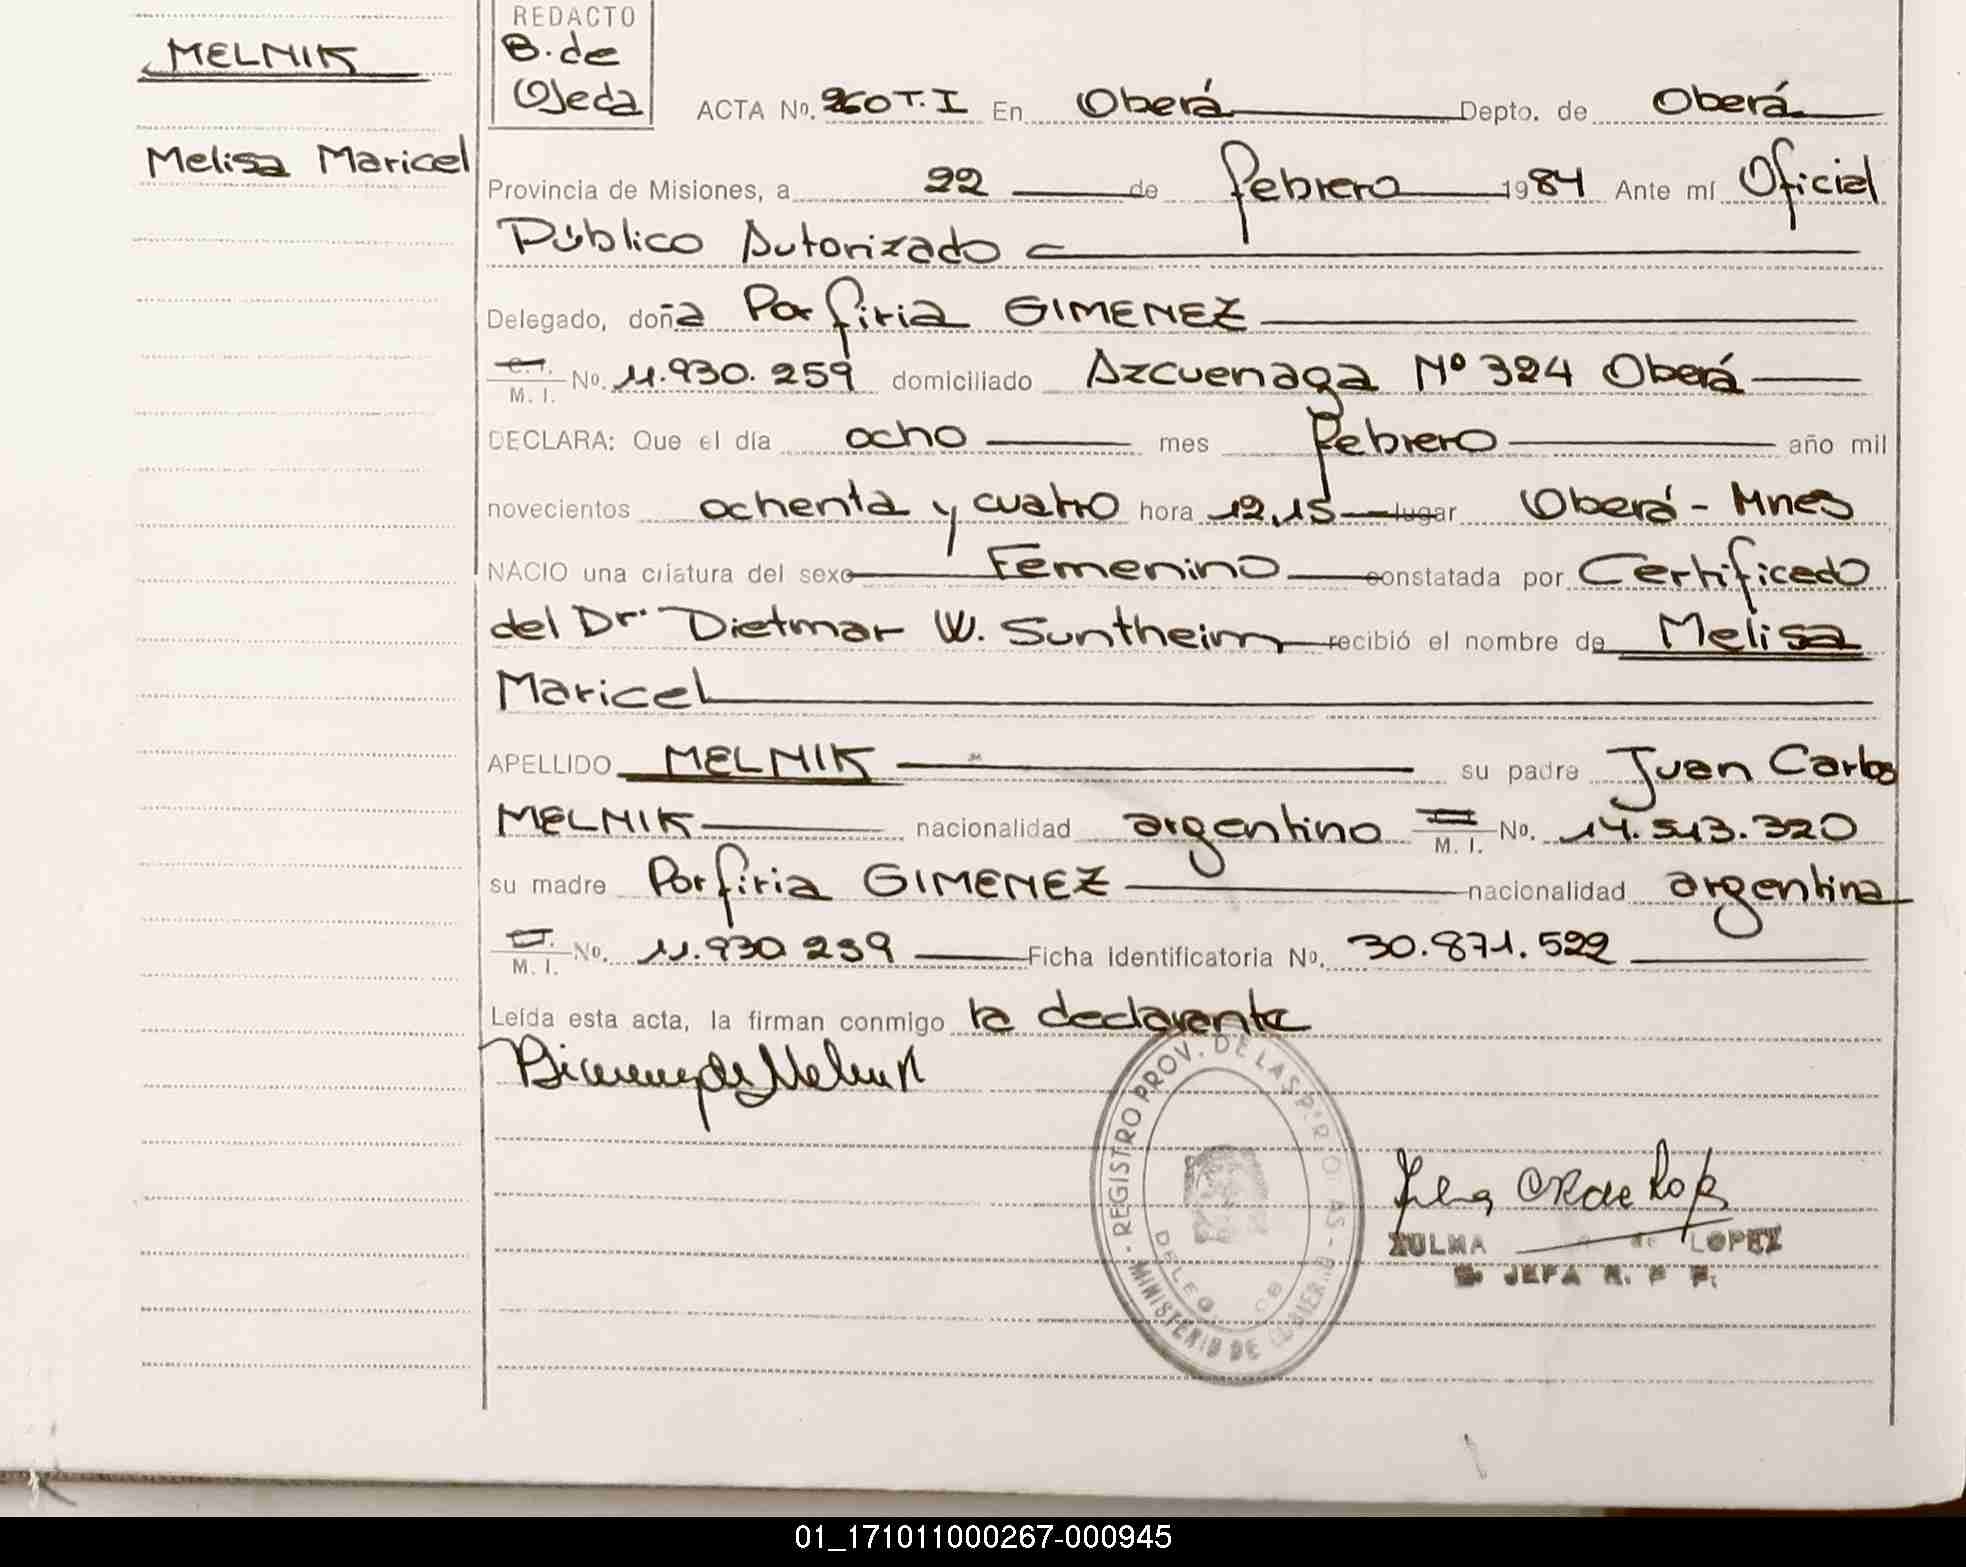 MELNIK
Melisa Maricel
REDACTO
B. de
Ojeda
ACTA Nº. 260 T. I En Oberá Depto. de Oberá
Provincia de Misiones, a 22 de febrero 1984 Ante mí Oficial
Público Autorizado
Delegado, doña Porfiria GIMENEZ
C.I. M. I. No. 11.930.259 domiciliado Azcuenaga Nº 324 Oberá
DECLARA: Que el día ocho mes febrero año mil
novecientos ochenta y cuatro hora 12,15 lugar Oberá - Mnes
NACIO una criatura del sexo Femenino constatada por Certificado
del Dr. Dietmar W. Suntheim recibió el nombre de Melisa
Maricel
APELLIDO MELNIK su padre Juan Carlos
MELNIK nacionalidad argentino M. I. No. 14.513.320
su madre Porfiria GIMENEZ nacionalidad argentina
M. I. No. 11.930.239 Ficha Identificatoria No. 30.871.522
Leída esta acta, la firman conmigo la declarante
REGISTRO PROV. DE LAS
MINISTERIO DE GOBIERNO
DELEG.
ZULMA de LOPEZ
JEFA R. P. P.
01_171011000267-000945